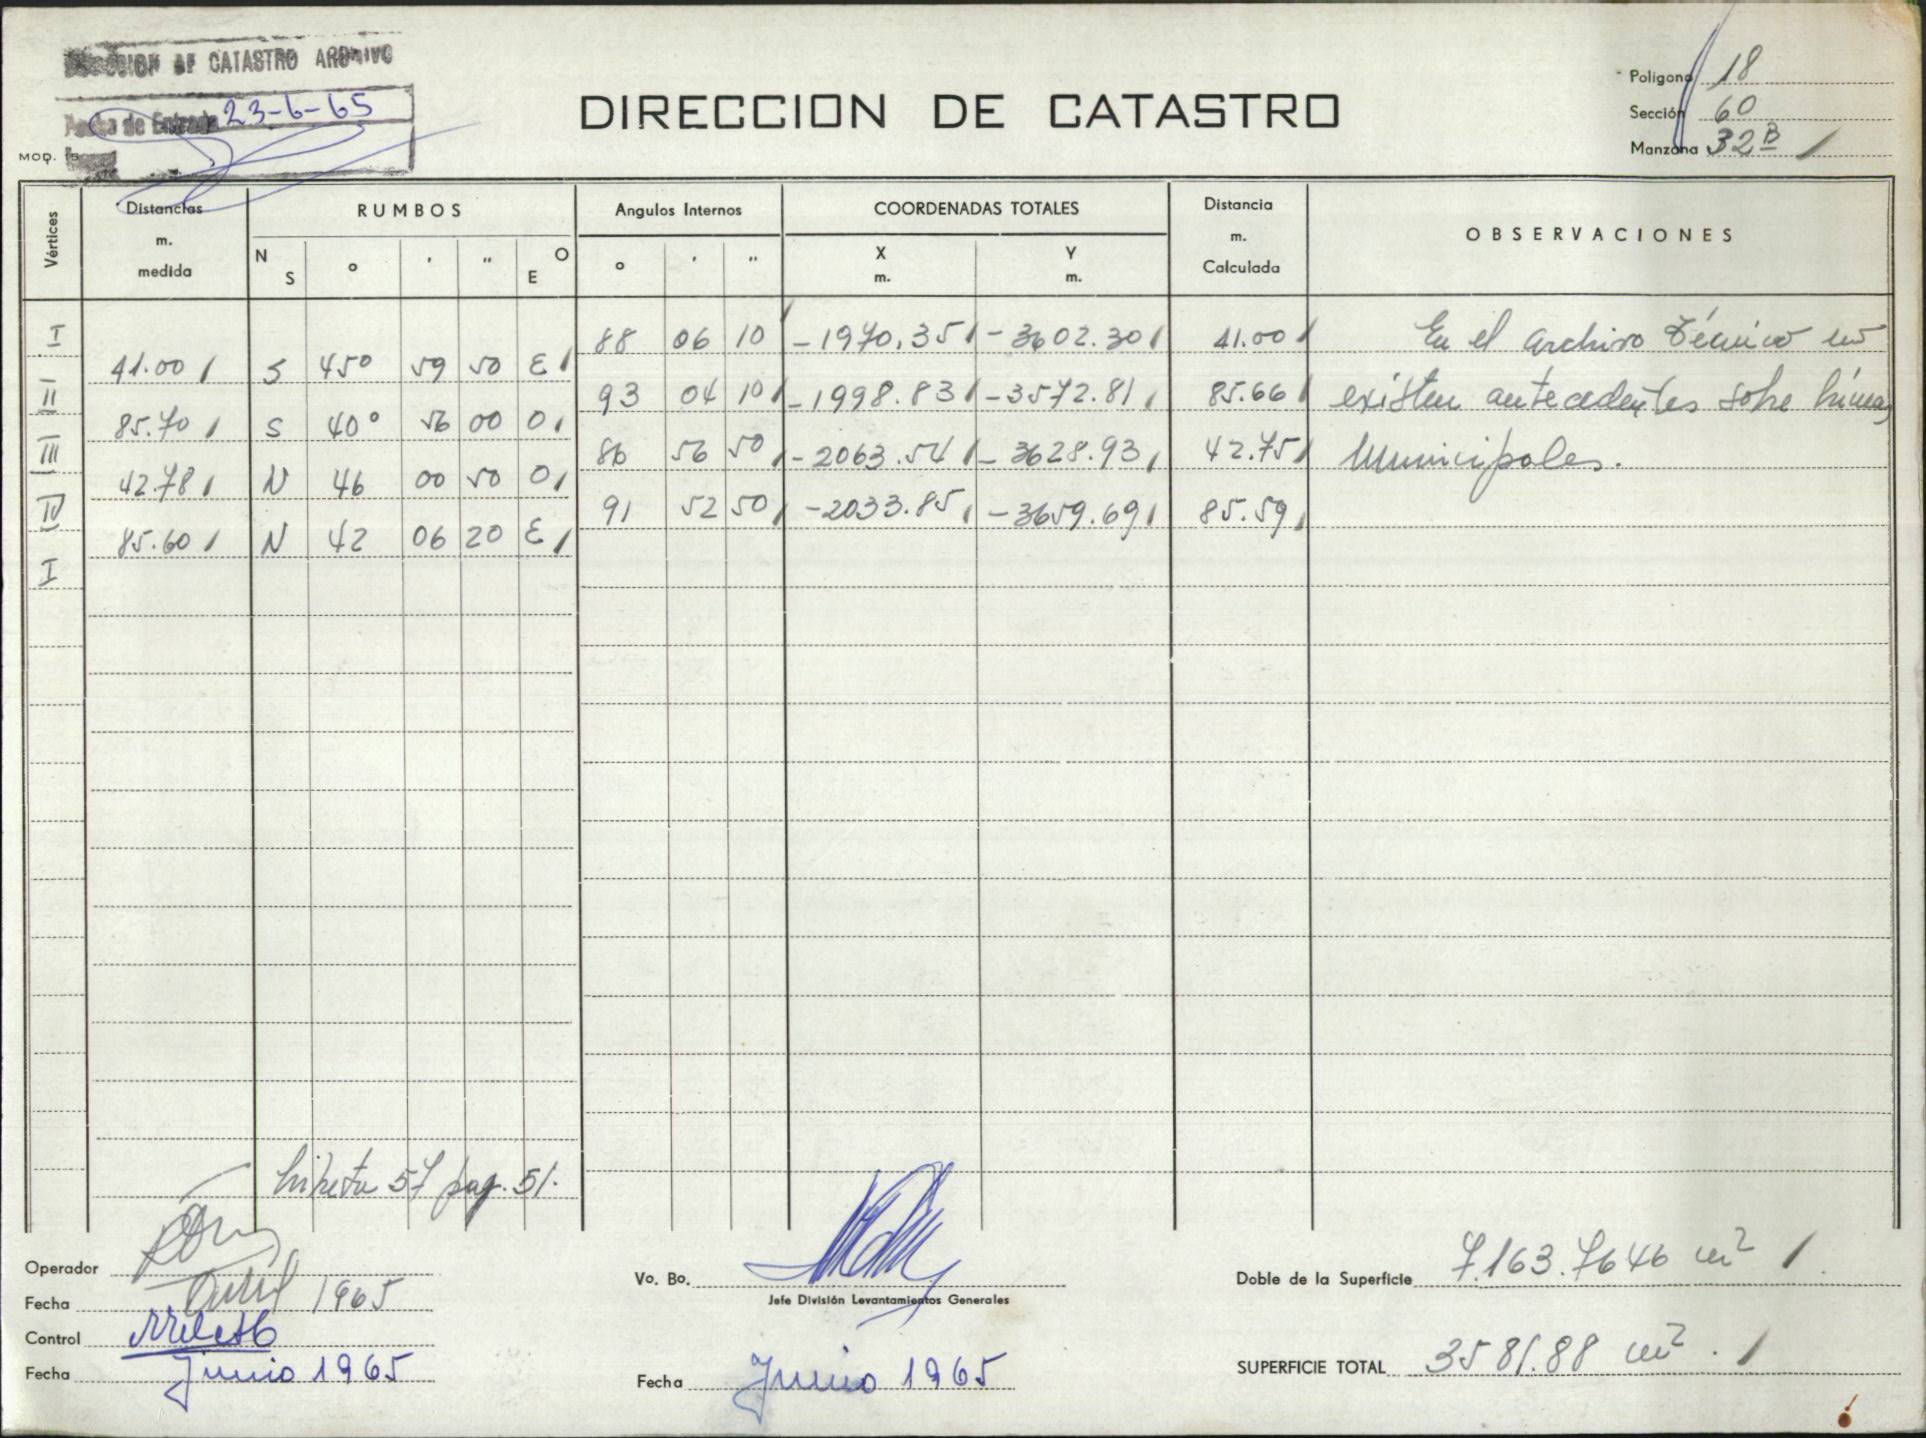 DIRECCION DE CATASTRO ARCHIVO
Fecha de Entrada 23-6-65
MOD.
DIRECCION DE CATASTRO
Poligono 18
Sección 60
Manzana 32B
Vértices
Distancias m. medida
RUMBOS
N S ° ' " O E
Angulos Internos
° ' "
COORDENADAS TOTALES
X m. Y m.
Distancia m. Calculada
OBSERVACIONES
I 88 06 10 -1970.35 -3602.30 41.00 En el archivo Técnico no
41.00 S 45° 59 50 E
II 93 04 10 -1998.83 -3572.81 85.66 existen antecedentes sobre líneas
85.70 S 40° 56 00 O
III 86 56 50 -2063.54 -3628.93 42.75 Municipales.
42.78 N 46 00 50 O
IV 91 52 50 -2033.85 -3659.69 85.59
85.60 N 42 06 20 E
I
Libreta 57 pag. 51.
Operador
Fecha Abril 1965
Control
Fecha Junio 1965
Vo. Bo.
Jefe División Levantamientos Generales
Fecha Junio 1965
Doble de la Superficie 7.163.7646 m²
SUPERFICIE TOTAL 3581.88 m².